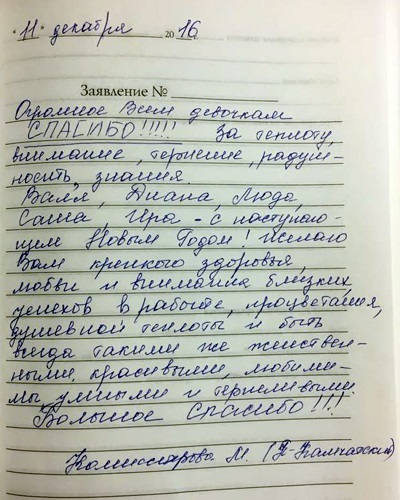 "11" декабря 2016
Заявление №
Огромное Всем девочкам
СПАСИБО!!!!! За теплоту,
внимание, терпение, радуш-
ность, знания.
Валя, Диана, Люда,
Саша, Ира - с наступаю-
щем Новым Годом! Желаю
Вам крепкого здоровья,
любви и внимания близких,
успехов в работе, процветания,
душевной теплоты и быть
всегда такими же женствен-
ными, красивыми, любими-
мы умными и терпеливыми.
Большое Спасибо!!!
Комиссарова М. (П-Камчатский)